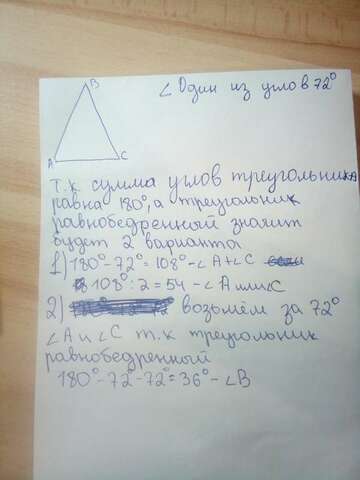 B
∠ Один из углов 72°
A
C
т.к сумма углов треугольника
равна 180°, а треугольник
равнобедренный значит
будет 2 варианта
1) 180°-72°=108°-∠A+∠C
108°:2=54-∠A или ∠C
2) возьмём за 72°
∠A и ∠C т.к треугольник
равнобедренный
180°-72°-72°=36°-∠B